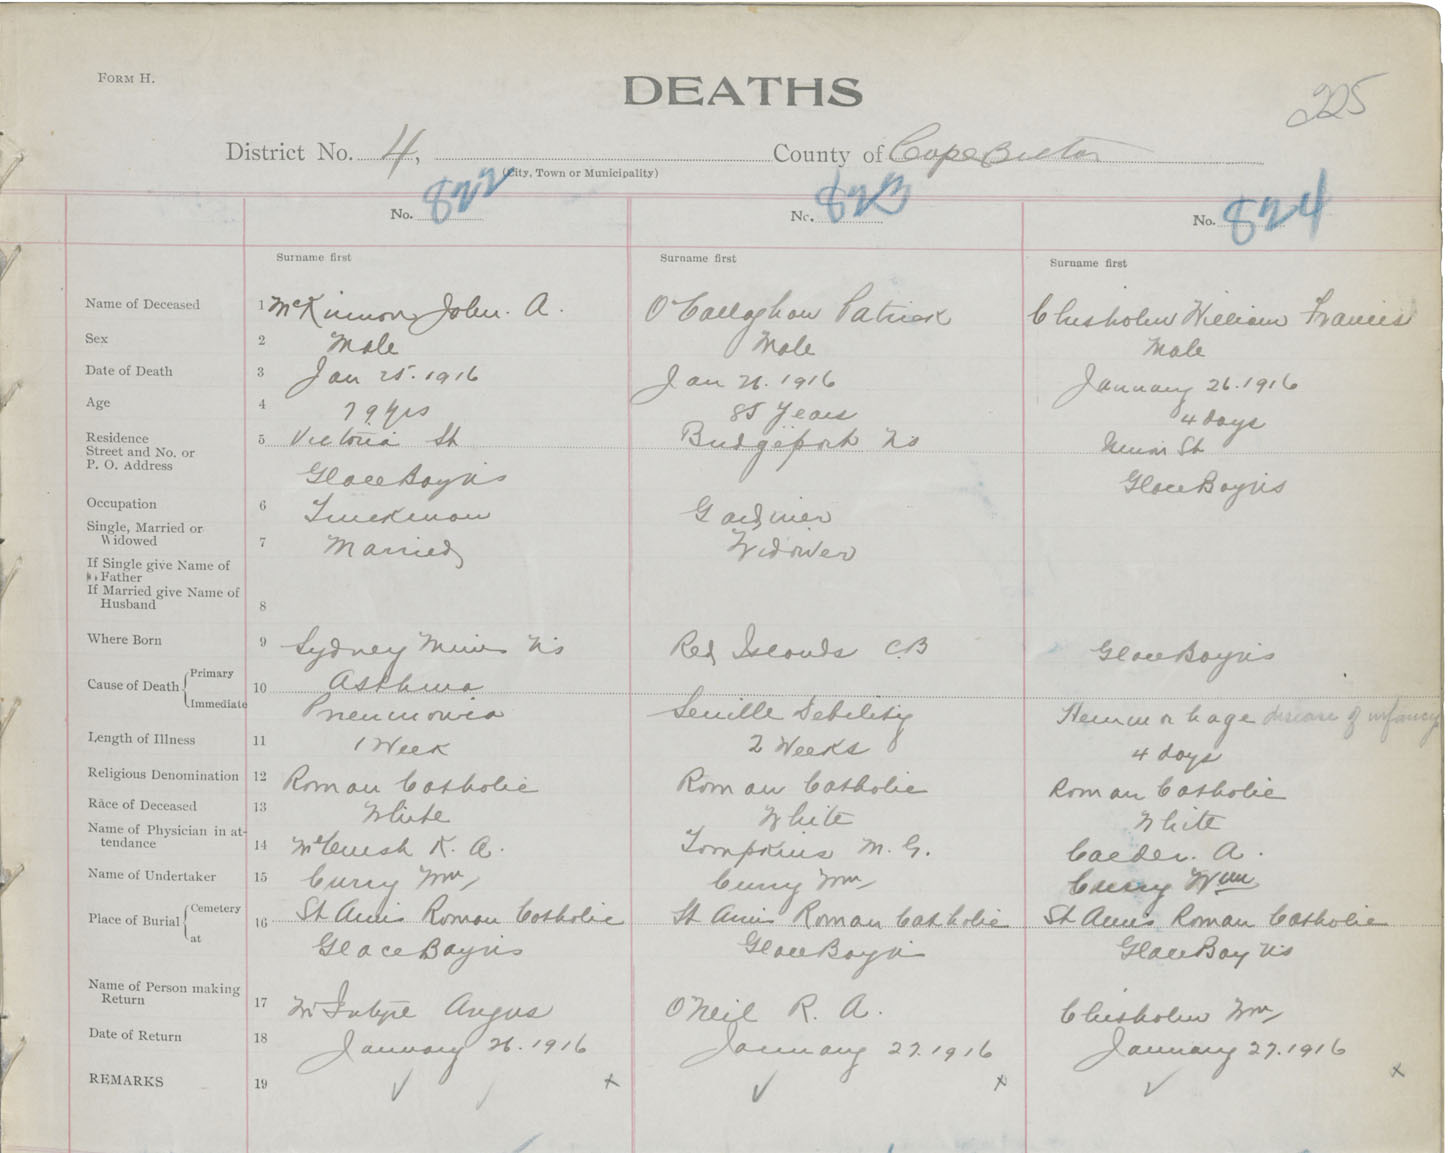 FORM H.
DEATHS
225
District No. 4, County of Cape Breton
(City, Town or Municipality)
No. 822 No. 823 No. 824
Surname first Surname first Surname first
Name of Deceased 1 McKinnon John. A. O'Callaghan Patrick Chisholm William Francis
Sex 2 Male Male Male
Date of Death 3 Jan 25. 1916 Jan 26. 1916 January 26. 1916
Age 4 79 yrs 85 Years 4 days
Residence 5 Victoria St Bridgeport Ns St
Street and No. or
P. O. Address Glace Bay Ns Glace Bay Ns
Occupation 6 Truckman Gardiner
Single, Married or
Widowed 7 Married Widower
If Single give Name of
Father
If Married give Name of
Husband 8
Where Born 9 Sydney Mines Ns Red Islands C.B Glace Bay Ns
Cause of Death Primary 10 Asthma
Immediate Pneumonia Senille Debility Hemmorhage disease of infancy
Length of Illness 11 1 Week 2 Weeks 4 days
Religious Denomination 12 Roman Catholic Roman Catholic Roman Catholic
Race of Deceased 13 White White White
Name of Physician in at-
tendance 14 K. A. Tompkins M. G. Calder. A.
Name of Undertaker 15 Curry Wm Curry Wm Curry Wm
Place of Burial Cemetery 16 St Anns Roman Catholic St Anns Roman Catholic St Anns Roman Catholic
at Glace Bay Ns Glace Bay Ns Glace Bay Ns
Name of Person making
Return 17 McIntyre Angus O'Neil R. A. Chisholm Wm
Date of Return 18 January 26. 1916 January 27. 1916 January 27. 1916
REMARKS 19 ✓ x ✓ x ✓ x